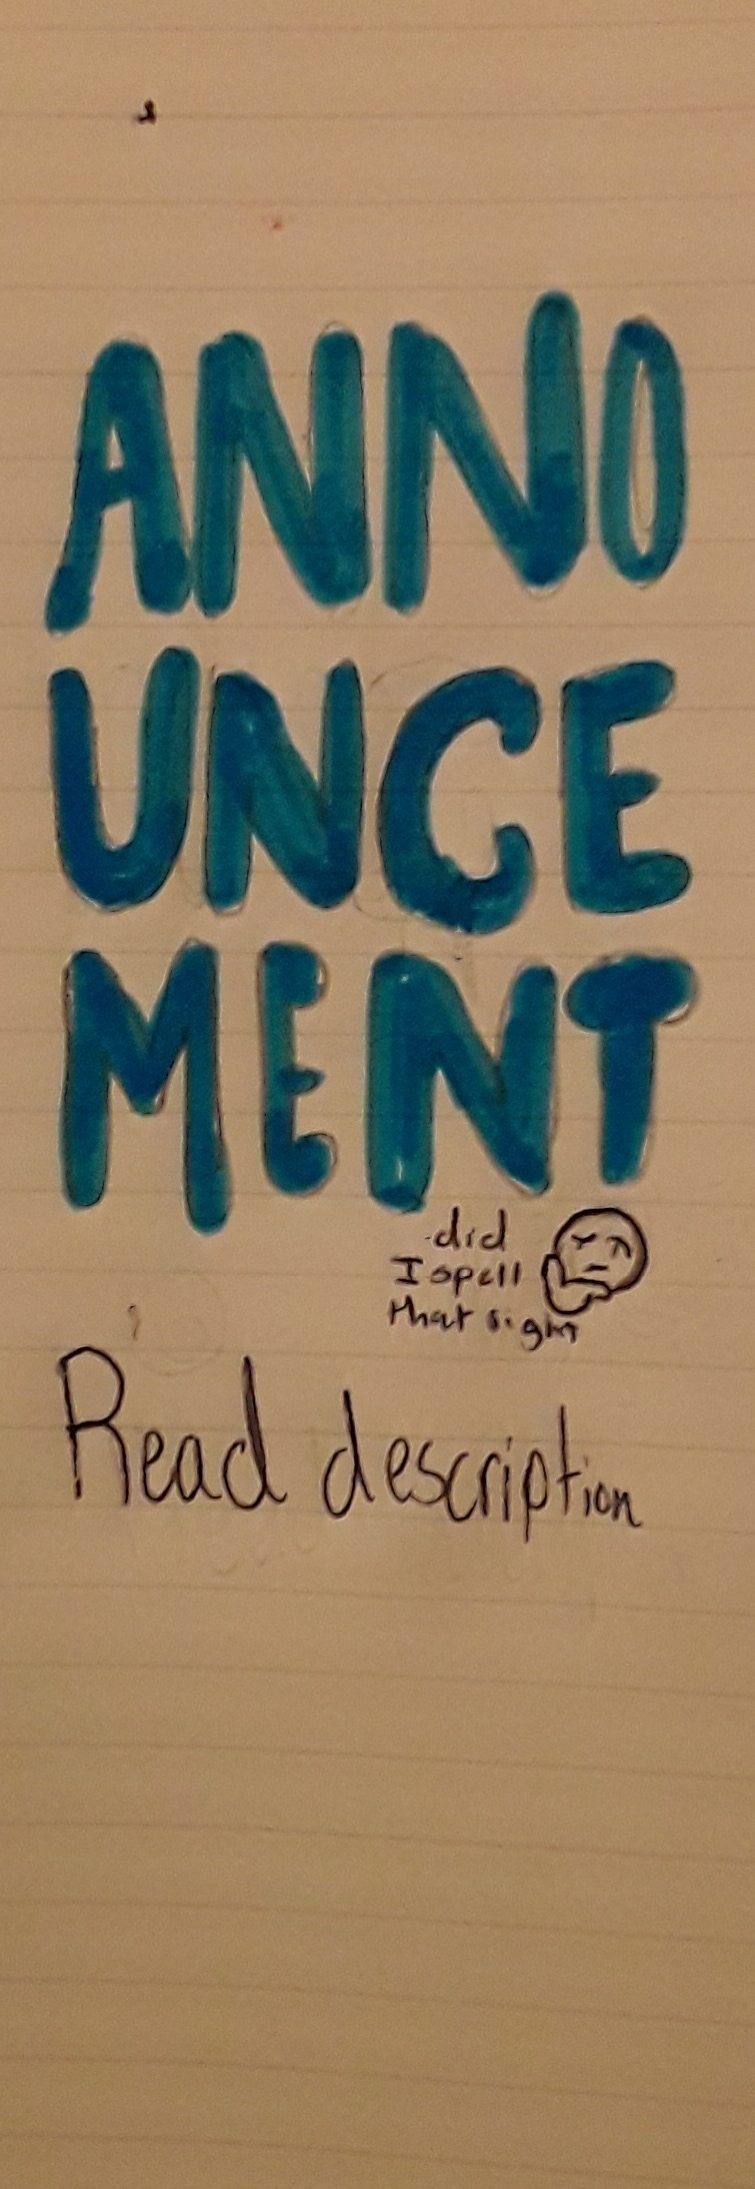 ANNO
UNCE
MENT
did
I spell
that right
Read description